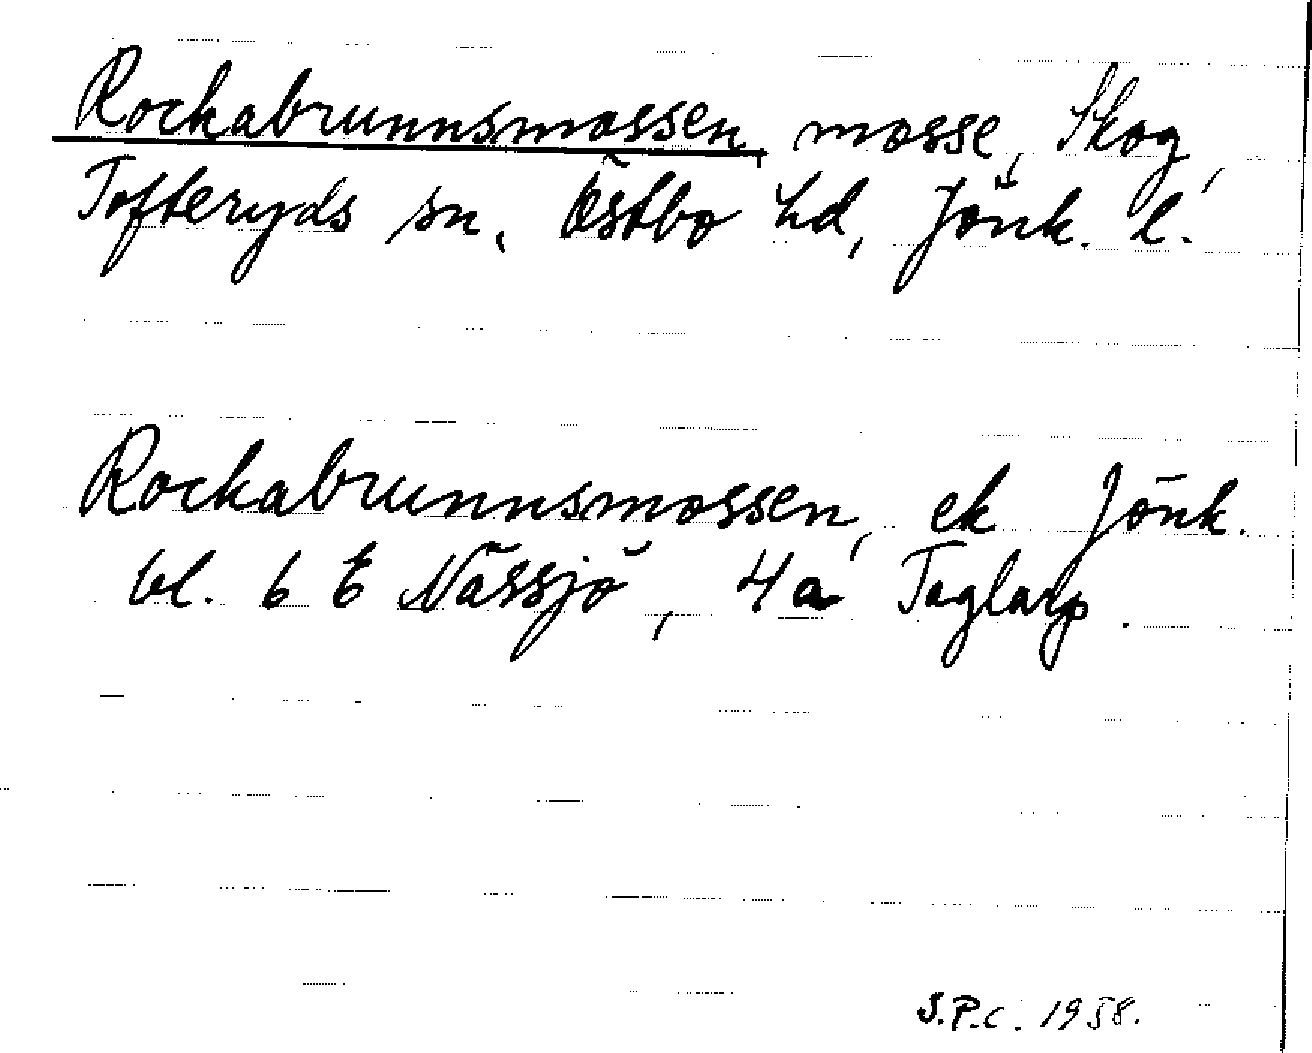 Rockabrunnsmossen, mosse, Skog,
Tofteryds sn, Östbo hd, Jönk. l.
Rockabrunnsmossen, ek Jönk.
bl. 6 E Nässjö, 4 a Taglarp.
S.P.C. 1958.